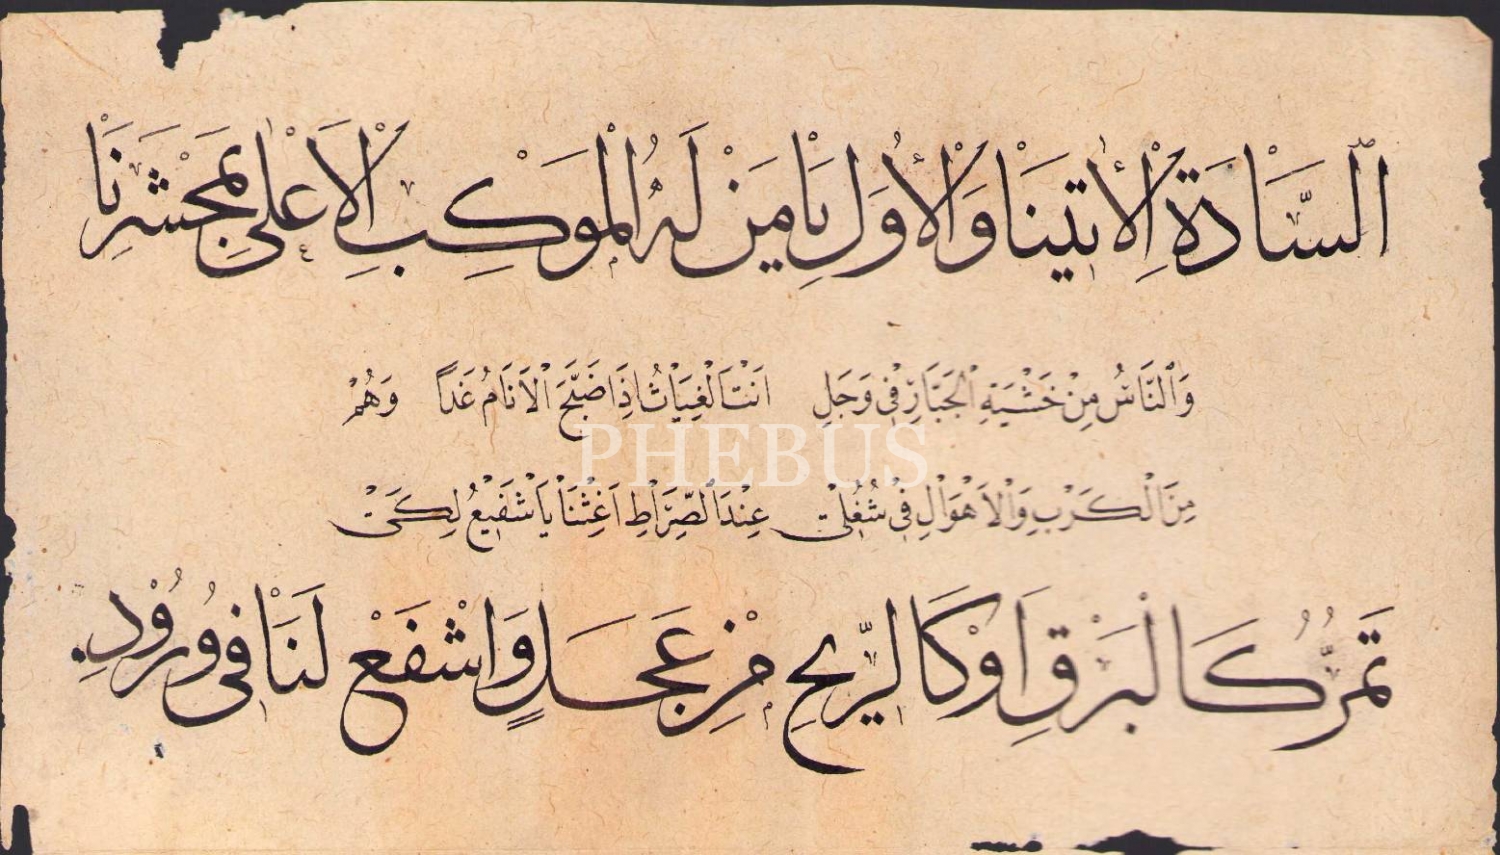 اَلسَّادَةِ الْاٰتِينَا وَالْأُوَلِ يَا مَنْ لَهُ الْمَوْكِبُ الْاَعْلٰى بِمَحْشَرِنَا
وَالنَّاسُ مِنْ خَشْيَةِ الْجَبَّارِ فِي وَجَلِ اَنْتَ الْغِيَاثُ اِذَا ضَجَّ الْاَنَامُ غَدًا وَهُمْ
PHEBUS
مِنَ الْكَرْبِ وَالْاَهْوَالِ فِي شُغُلٍ عِنْدَ الصِّرَاطِ اَغِثْنَا يَا شَفِيعُ لِكَيْ
تَمُرُّ كَالْبَرْقِ اَوْ كَالرِّيحِ مِنْ عَجَلٍ وَاشْفَعْ لَنَا فِي وُرُودِ